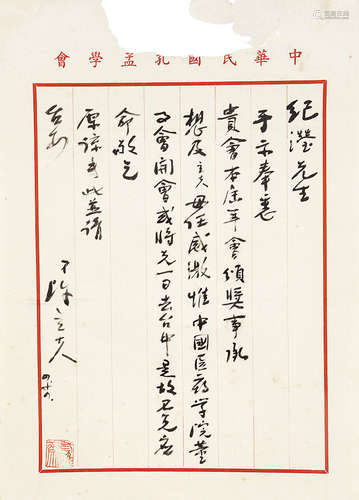 中華民國孔孟學會
紀瀅先生
手示奉悉
貴會本屆年會頒獎事承
想及立夫毋任感激惟中國医药学院董
事會開會或將先一日去台中是故
命敬乞
原諒專此並請
台安
弟陳立夫